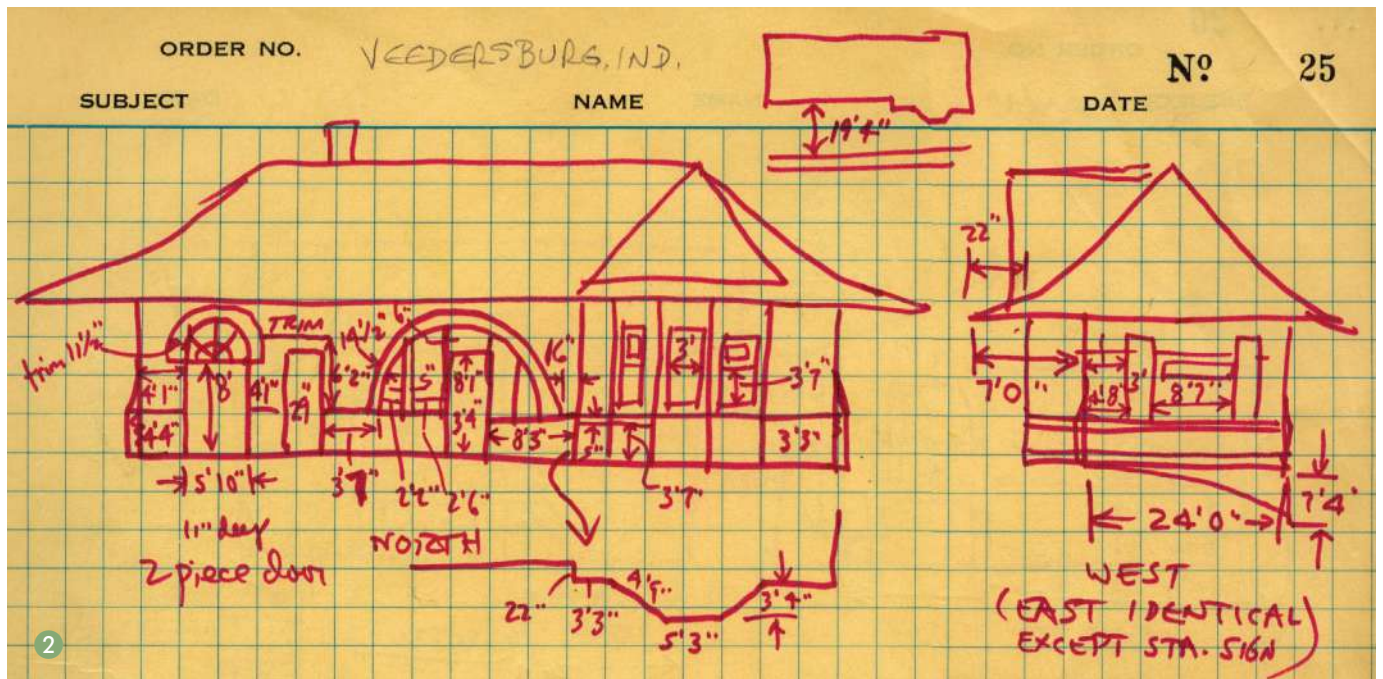 ORDER NO. VEEDERSBURG, IND. Nº 25
SUBJECT NAME DATE
19'4"
22"
trim 11½"
TRIM
14½"
6"
16"
4'1"
8'
4'1"
6'2"
5"
8'1"
3'
3'7"
7'0"
4'8"
3'
8'7"
4'4"
29"
3'4"
8'3"
5"
3'3"
5'10"
3'7"
2'2"
2'6"
3'7"
24'0"
11" deep
2 piece door
NORTH
22"
3'3"
4'9"
5'3"
3'4"
WEST
(EAST IDENTICAL
EXCEPT STA. SIGN)
2